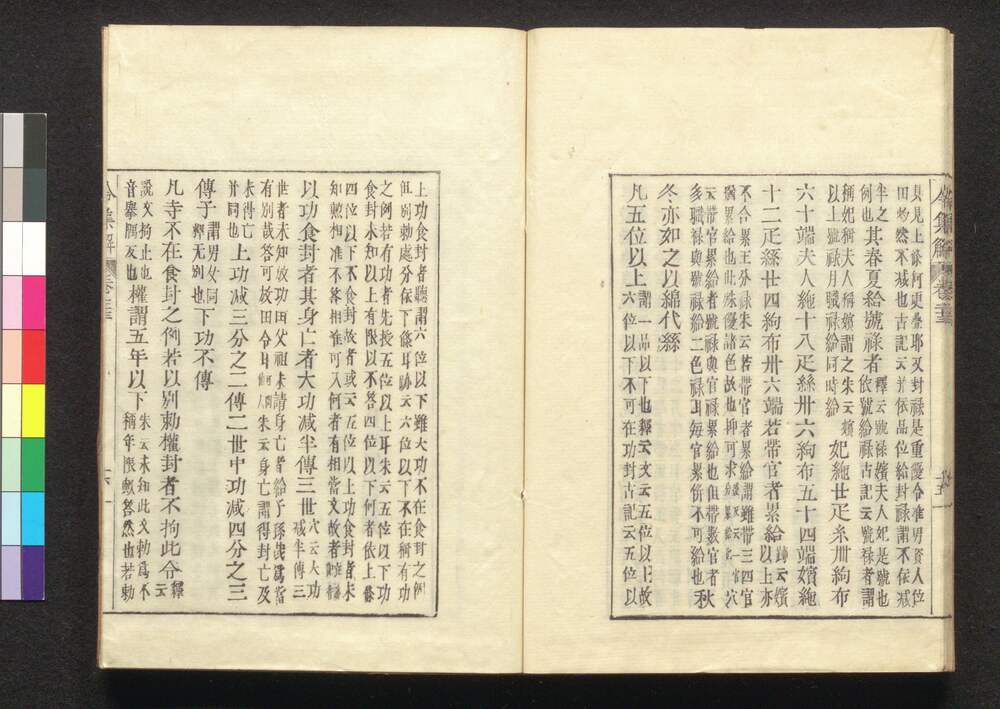 令集解 卷廿三 十五
貝見上條何更疊耶又封祿是重優令准男資人位
田物然不減也古記云並依品位給封祿謂不在減
半之例也其春夏給號祿者 釋云號祿嬪夫人妃是號也
依號給祿古記云號祿者謂
稱妃稱夫人稱嬪謂之朱云
以上號祿月號祿給同時給 妃絁廿疋糸卌絇布
六十端夫人絁十八疋絲卅六絇布五十四端嬪絁
十二疋絲廿四絇布卅六端若帶官者累給
以上亦
不合累王分祿朱云若帶官者累給謂雖帶三四官
云帶官累給者號祿與官祿累給也但帶數官者
多職祿與號祿給二色祿耳每官累併不可給也 秋
冬亦如之以綿代絲
凡五位以上 謂一品以下也釋云文云五位以上故
六位以下不可在功封古記云五位以
上功食封者聽謂六位以下雖大功不在食封之
但別勅處分依下條耳跡云六位以下不在稱有功
之例若有功者先授五位以上耳朱云五位以下功
食封未知以上有限以不答四位以下何者依上條
四位以下不食封故者或云五位以上功食封者未
知勲相准不答相准可入何者有相當文故者
以功食封者其身亡者大功減半傳三世 穴云大功
減半傳三
世者未知父功田父祖未請身亡者給子孫哉爲當
有別哉答可放田令耳 朱云身亡謂得封亡及
未得亡
並同也 上功減三分之二傳二世中功減四分之三
傳子 謂男女同
釋无別也 下功不傳
凡寺不在食封之例若以別勅權封者不拘此令 釋云
說文拘止也
音舉隅反也 權謂五年以下 朱云未知此文勅爲不
稱年限故答然也若勅
令集解 卷廿三 十六